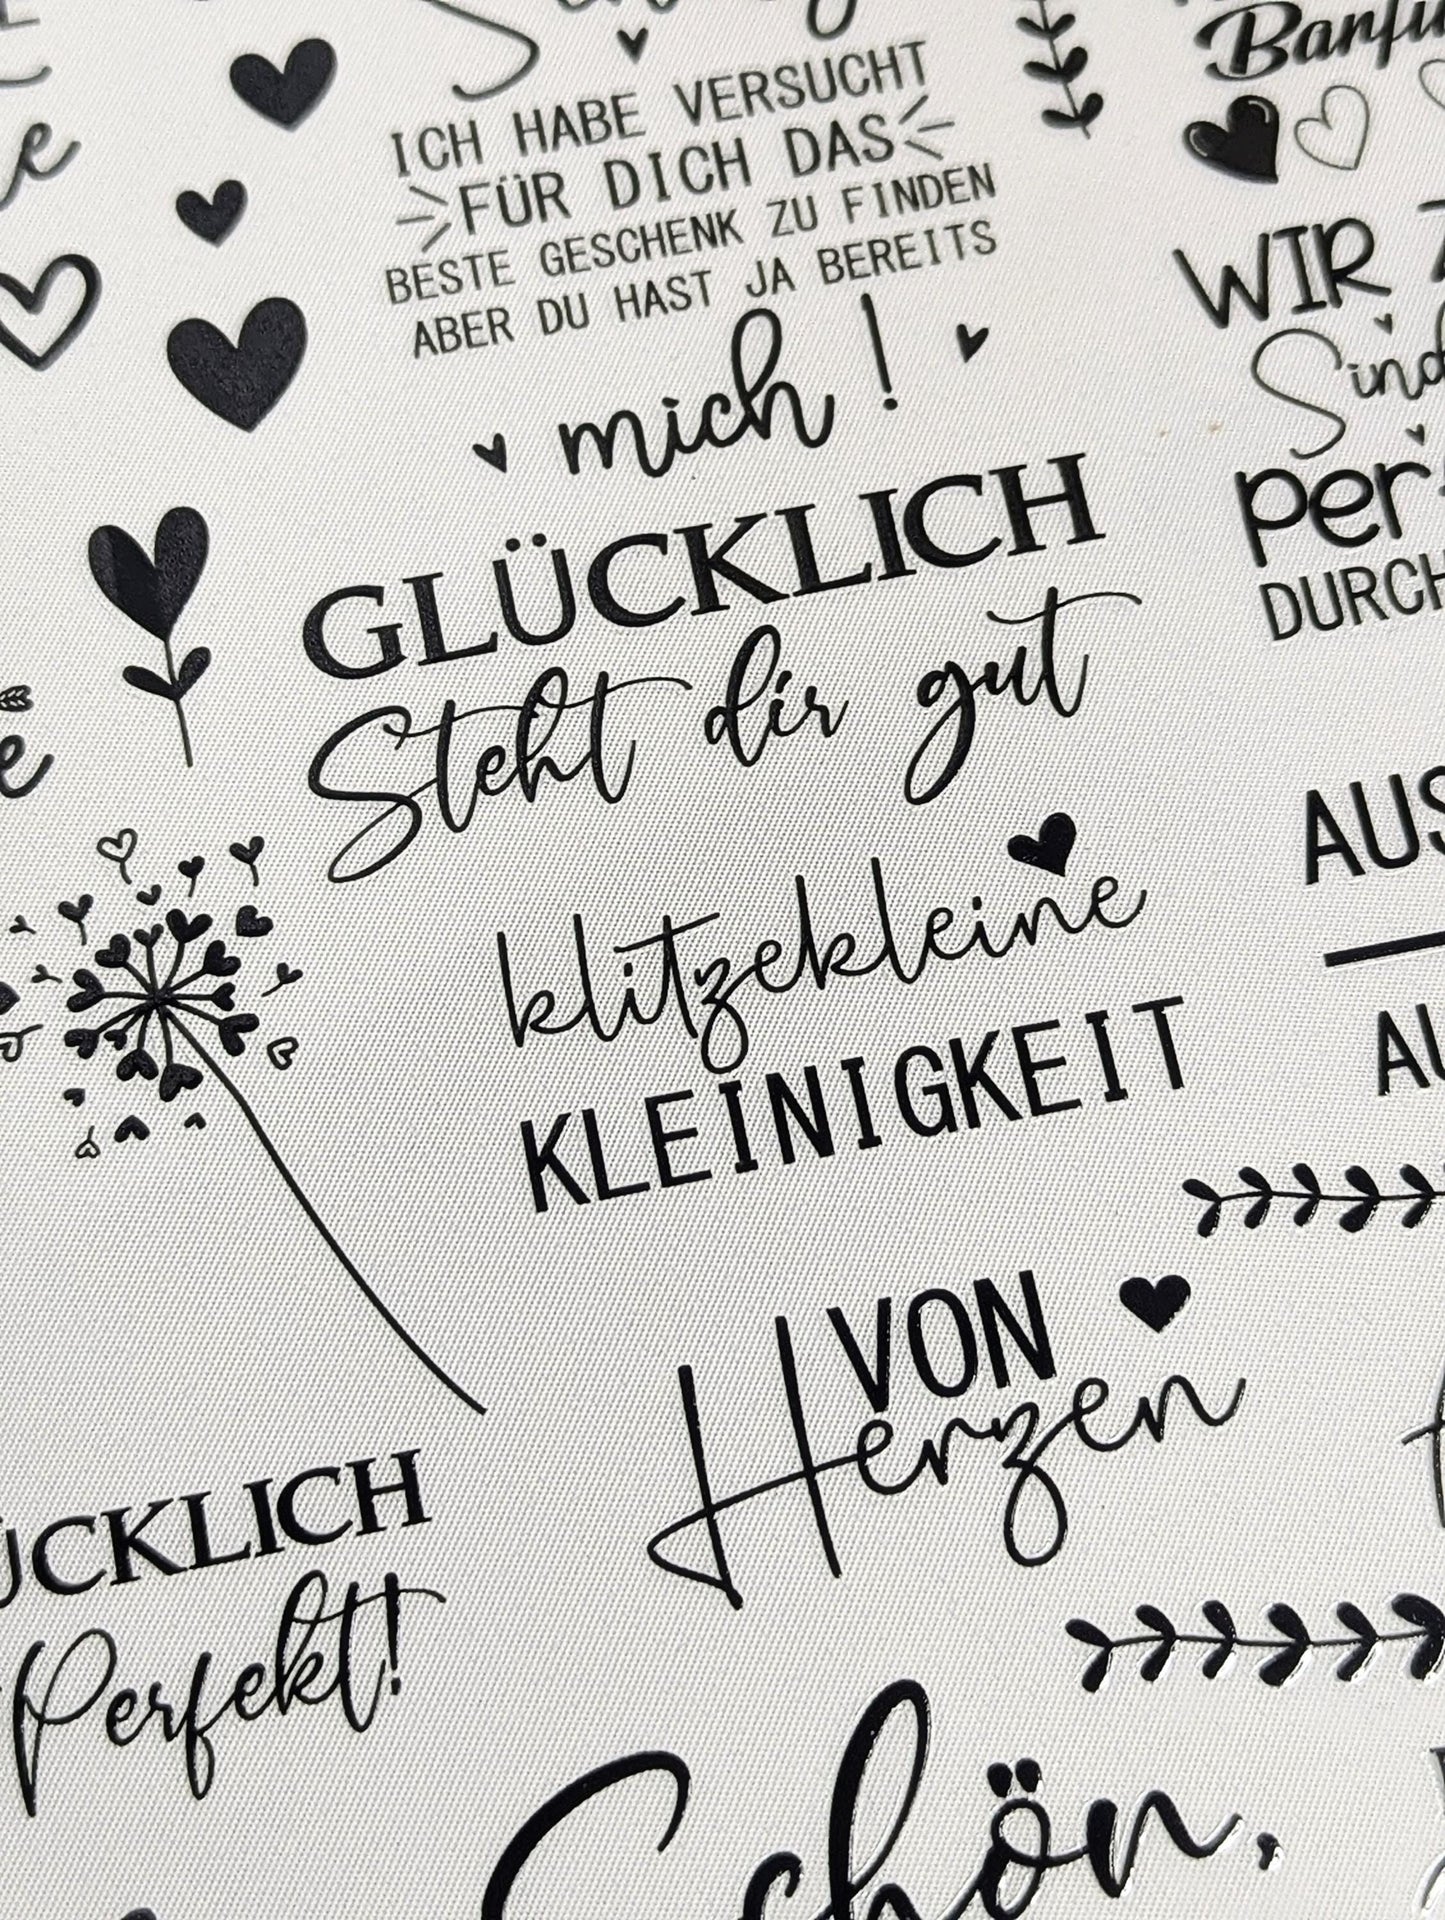 ICH HABE VERSUCHT
FÜR DICH DAS
BESTE GESCHENK ZU FINDEN
ABER DU HAST JA BEREITS
mich!
GLÜCKLICH
Steht dir gut
klitzekleine
KLEINIGKEIT
VON
Herzen
Perfekt!
Schön,
WIR
Sind
DURCH